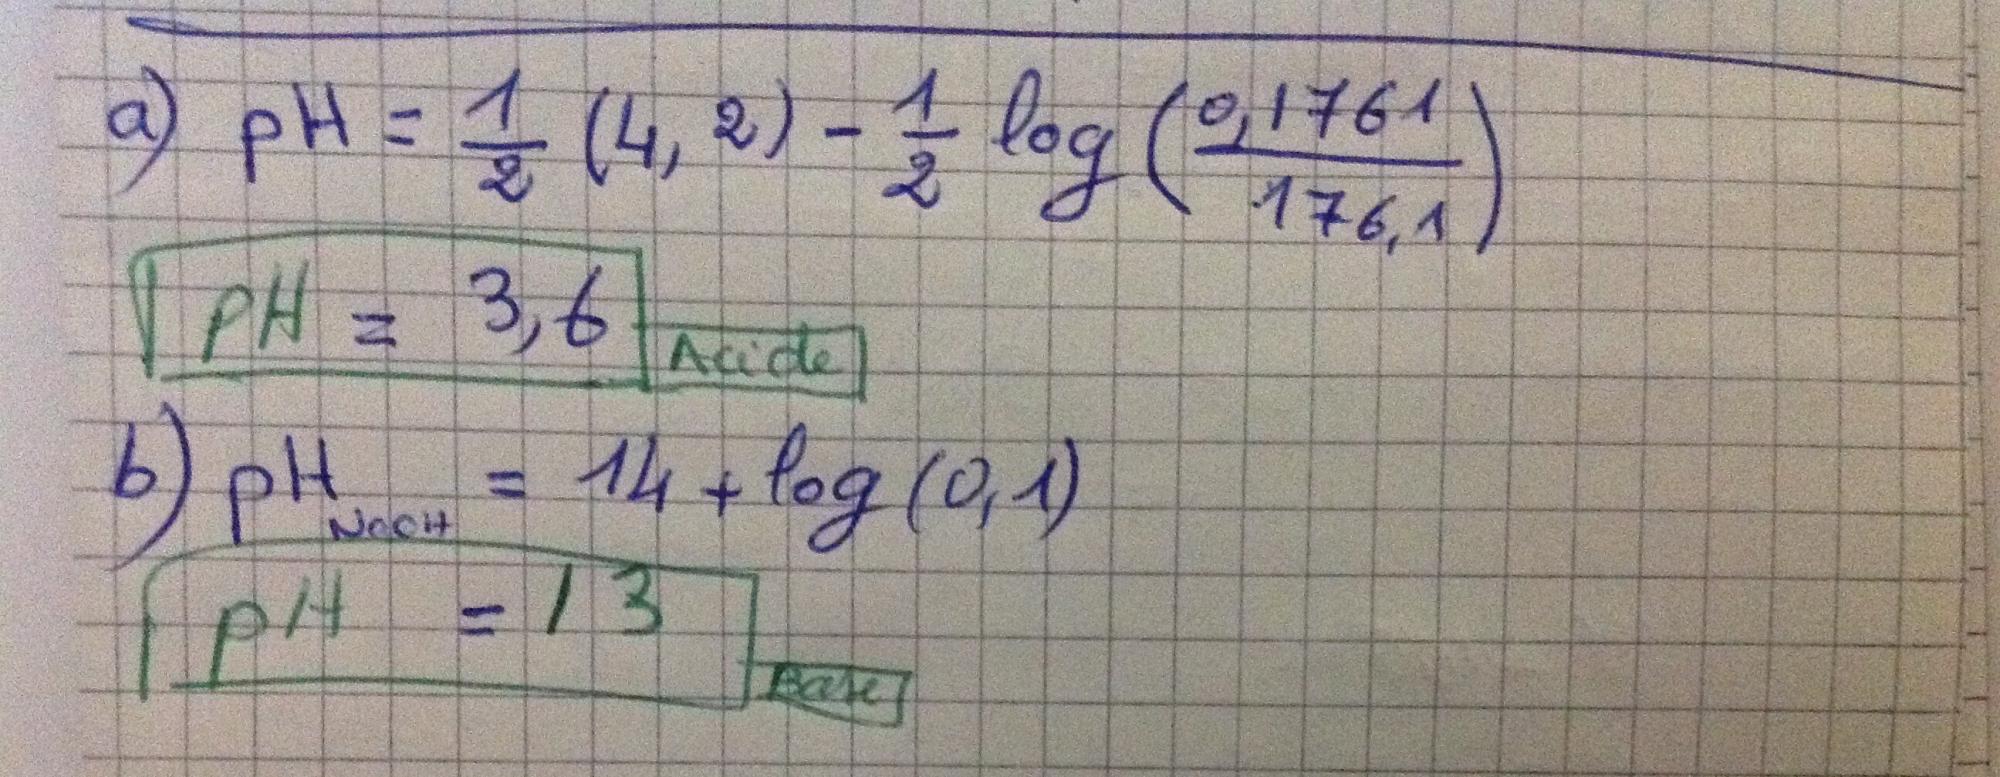 a) pH = 1/2 (4,2) - 1/2 log (0,1761/176,1)
pH = 3,6
Acide
b) pH NaOH = 14 + log (0,1)
pH = 13
Base